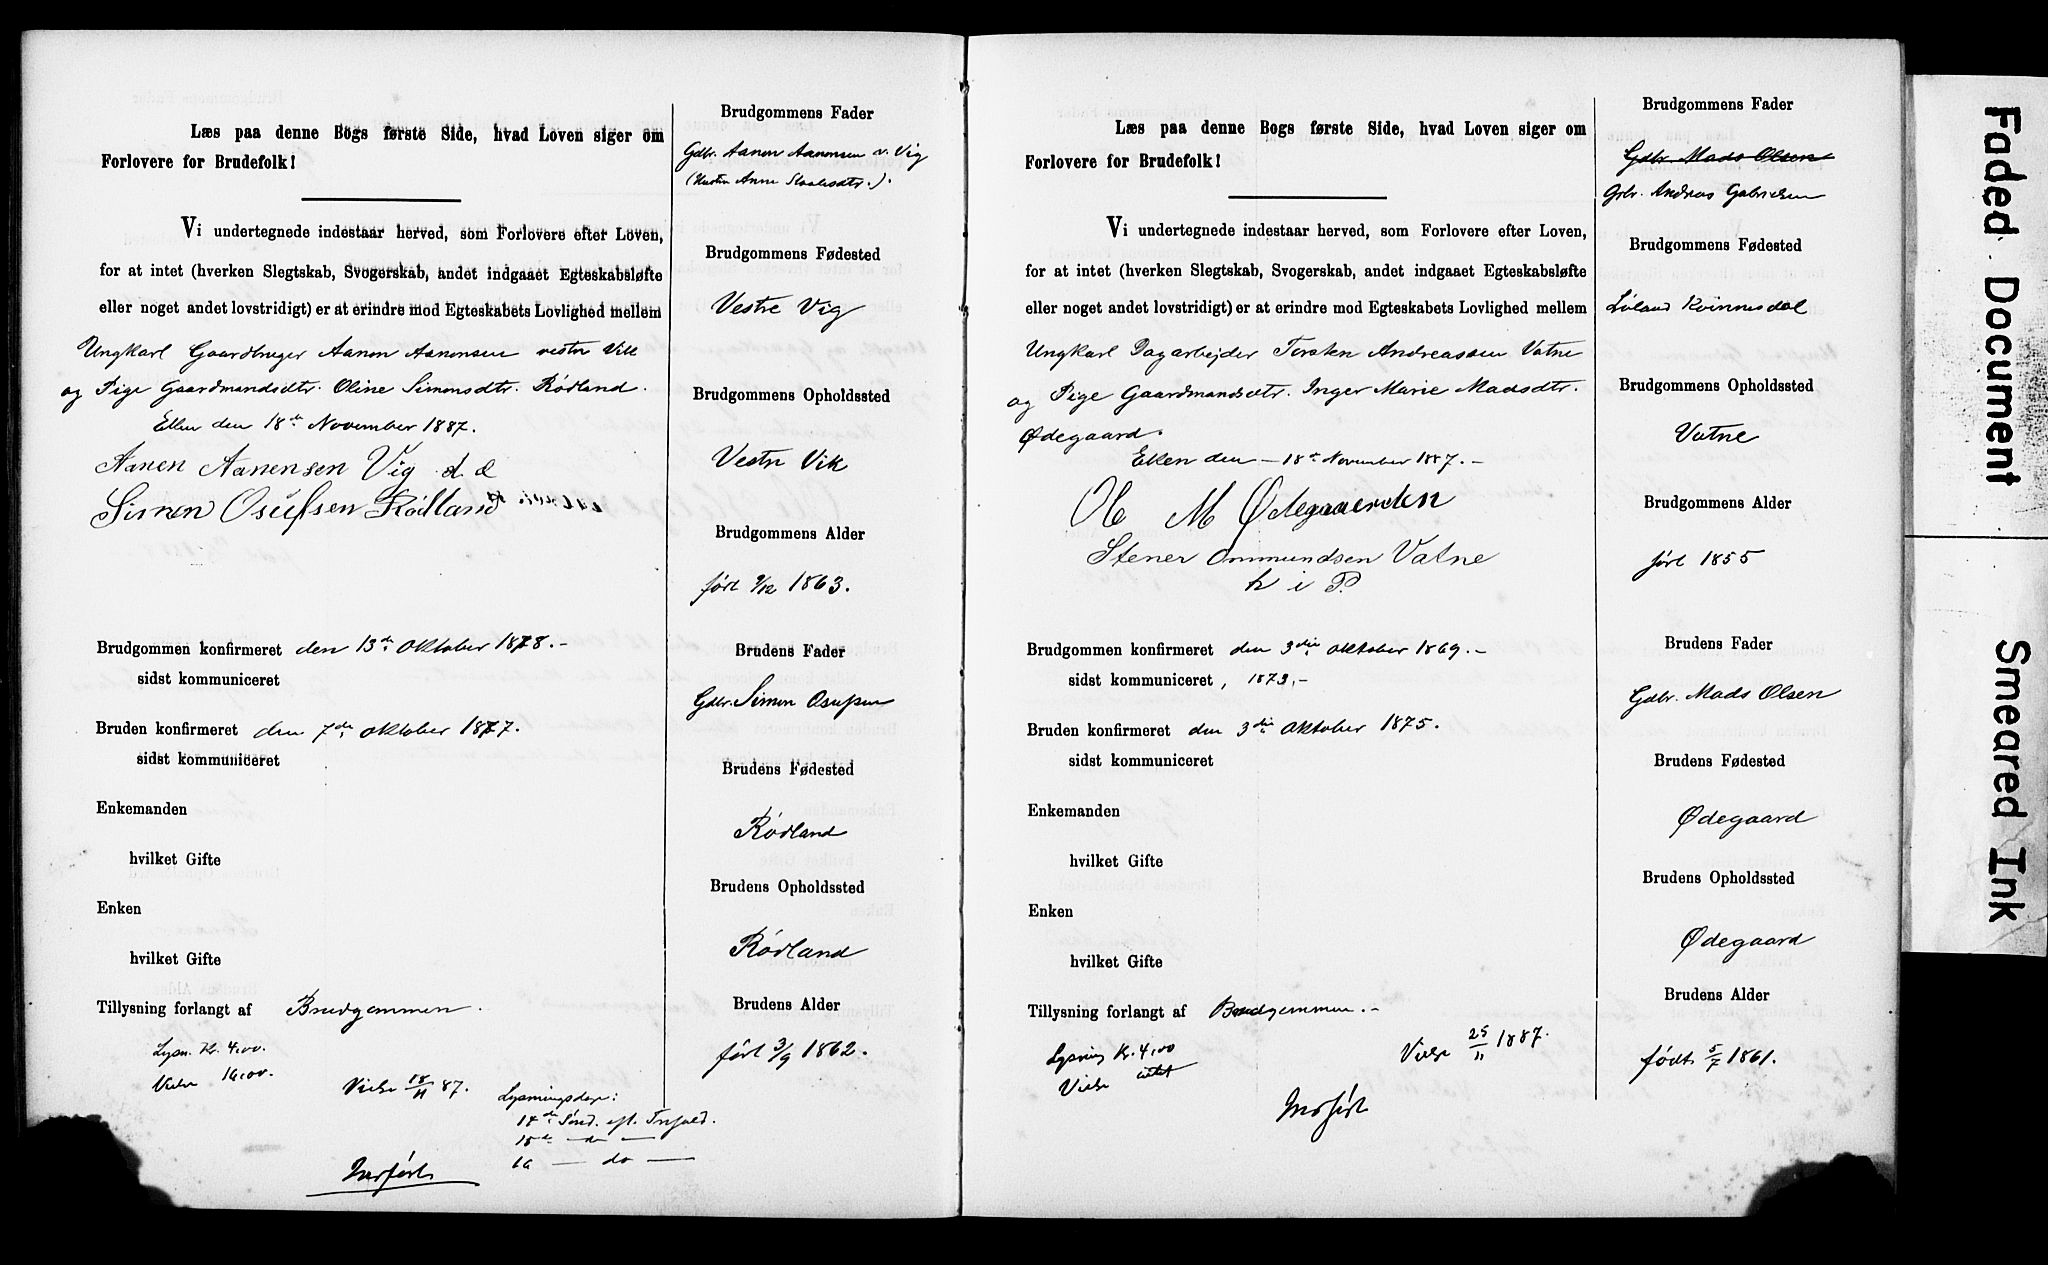 Læs paa denne Bogs første Side, hvad Loven siger om
Forlovere for Brudefolk!
Vi undertegnede indestaar herved, som Forlovere efter Loven,
for at intet (hverken Slegtskab, Svogerskab, andet indgaaet Egteskabsløfte
eller noget andet lovstridigt) er at erindre mod Egteskabets Lovlighed mellem
Ungkarl Gaardbruger Aanen Aanensen vestre Vik
og Pige Gaardmandsdtr. Oline Simonsdtr. Rødland.
Eken den 18de November 1887.
Aanen Aanensen Vig
Simon Osufsen Rødland
Brudgommen konfirmeret den 13de Oktober 1878.-
sidst kommuniceret
Bruden konfirmeret den 7de Oktober 1877.
sidst kommuniceret
Enkemanden
hvilket Gifte
Enken
hvilket Gifte
Tillysning forlangt af Brudgommen.
Lysn. Kr. 4,00.
Vielse 16,00.
Vielse 18/11 87.
Lysningsdage:
18de Sønd. eft. Trefold.
— do —
— do —
Indført
Brudgommens Fader
Gdbr. Aanen Aanensen v. Vig
(Hustru Anne
Brudgommens Fødested
Vestre Vig
Brudgommens Opholdssted
Vestre Vik
Brudgommens Alder
født 9/12 1863.
Brudens Fader
Gdbr. Simon Osufsen
Brudens Fødested
Rødland
Brudens Opholdssted
Rødland
Brudens Alder
født 3/9 1862.
Læs paa denne Bogs første Side, hvad Loven siger om
Forlovere for Brudefolk!
Vi undertegnede indestaar herved, som Forlovere efter Loven,
for at intet (hverken Slegtskab, Svogerskab, andet indgaaet Egteskabsløfte
eller noget andet lovstridigt) er at erindre mod Egteskabets Lovlighed mellem
Ungkarl Dagarbejder Torsten Andreassen Vatne
og Pige Gaardmandsdtr. Inger Marie Madsdtr.
Ødegaard.
Eken den - 18de November 1887.-
O M Ødegaarden
Stener Ommundsen Vatne
h i P.
Brudgommen konfirmeret den 3die Oktober 1869.-
sidst kommuniceret, 1873,-
Bruden konfirmeret den 3die Oktober 1875.
sidst kommuniceret
Enkemanden
hvilket Gifte
Enken
hvilket Gifte
Tillysning forlangt af Brudgommen.-
Lysning Kr. 4,00
Vielse intet
Vielse 25/11 1887.
Indført
Brudgommens Fader
Gdbr. Mads Olsen
Gbr. Andreas Gabrielsen
Brudgommens Fødested
Løland Kvinnesdal
Brudgommens Opholdssted
Vatne
Brudgommens Alder
født 1855
Brudens Fader
Gdbr. Mads Olsen
Brudens Fødested
Ødegaard
Brudens Opholdssted
Ødegaard
Brudens Alder
født 5/7 1861.
Faded Document
Smeared Ink